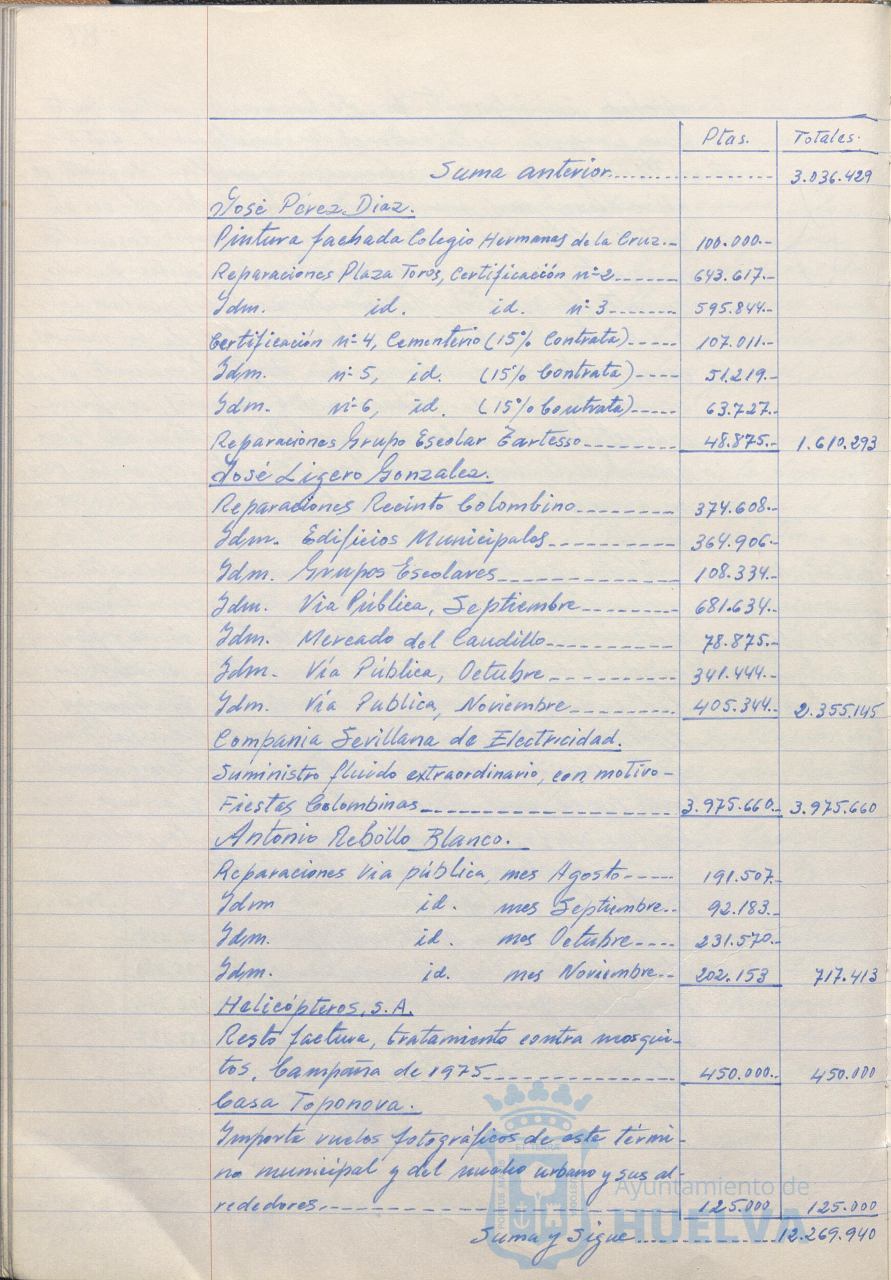 Ptas. Totales.
Suma anterior.................. 3.036.429
José Pérez Diaz.
Pintura fachada Colegio Hermanas de la Cruz.- 100.000.-
Reparaciones Plaza Toros, Certificación nº 2------ 643.617.-
Idm. id. id. nº 3------- 595.844.-
Certificación nº 4, Cementerio (15% Contrata)----- 107.011.-
Idm. nº 5, id. (15% Contrata)---- 51.219.-
Idm. nº 6, id. (15% Contrata)----- 63.727.-
Reparaciones Grupo Escolar Tartesso--------- 48.875.- 1.610.293
José Ligero Gonzalez.
Reparaciones Recinto Colombino---------- 374.608.-
Idm. Edificios Municipales------------- 364.906.-
Idm. Grupos Escolares---------------- 108.334.-
Idm. Via Pública, Septiembre--------- 681.634.-
Idm. Mercado del Caudillo------------ 78.875.-
Idm. Vía Pública, Octubre------------ 341.444.-
Idm. Vía Publica, Noviembre---------- 405.344.- 2.355.145
Compania Sevillana de Electricidad.
Suministro fluido extraordinario, con motivo-
Fiestas Colombinas------------------------ 3.975.660.- 3.975.660
Antonio Rebollo Blanco.
Reparaciones Via pública, mes Agosto----- 191.507.-
Idm id. mes Septiembre.-- 92.183.-
Idm. id. mes Octubre---- 231.570.-
Idm. id. mes Noviembre--- 202.153 717.413
Helicópteros, S.A.
Resto factura, tratamiento contra mosqui-
tos, Campaña de 1975------------------ 450.000.- 450.000
Casa Toponova.
Importe vuelos fotográficos de este térmi-
no municipal y del nucleo urbano y sus al-
rededores.---------------------------- 125.000 125.000
Suma y Sigue..................12.269.940
Ayuntamiento de
HUELVA